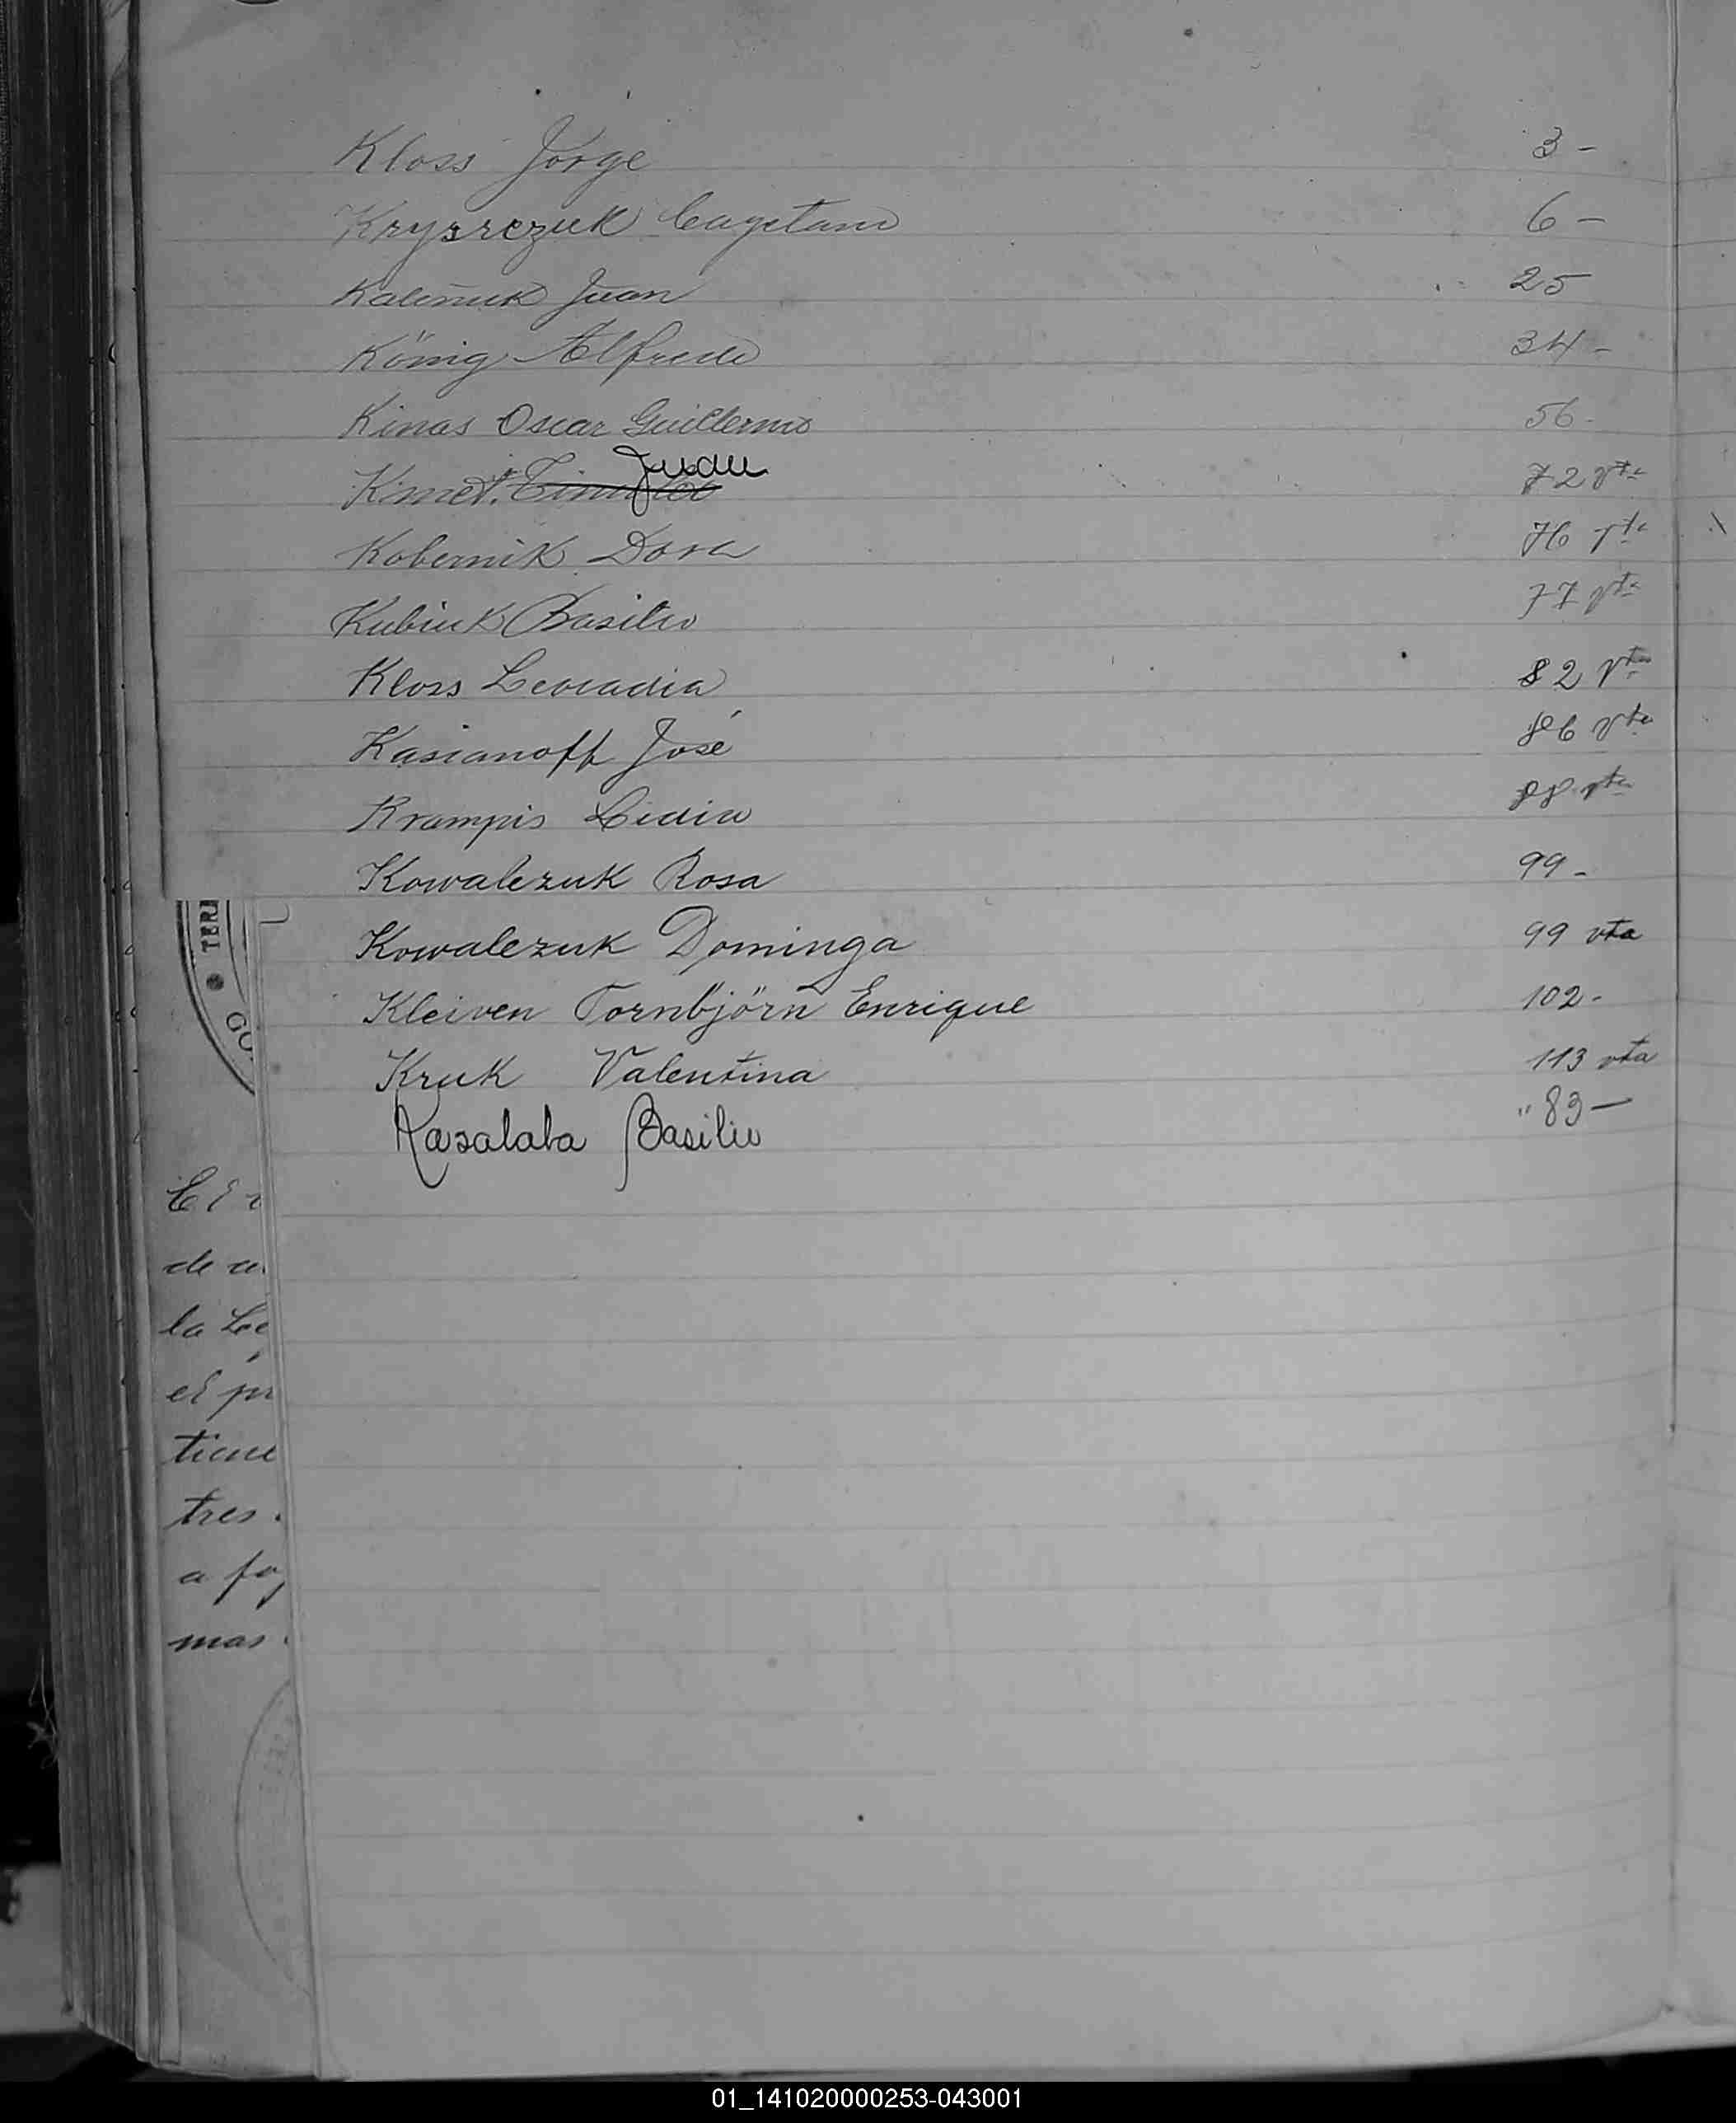 Kloss Jorge 3 -
Krysrczuk Cayetano 6 -
Kaliñuk Juan 25
König Alfredo 34 -
Kinas Oscar Guillermo 56 -
Juan
Kmet. 72 vta
Kobernik Dora 76 vta
Kubiuk Basilio 77 vta
Kloss Leocadia 82 vta
Kasianoff José 86 vta
Krampis Lidia 88 vta
Kowalczuk Rosa 99 -
Kowalczuk Dominga 99 vta
Kleiven Tornbjörn Enrique 102 -
Kruk Valentina 113 vta
Kasalaba Basilio " 83 —
TER
GO
de
la
el
tres.
a
mas
01_141020000253-043001